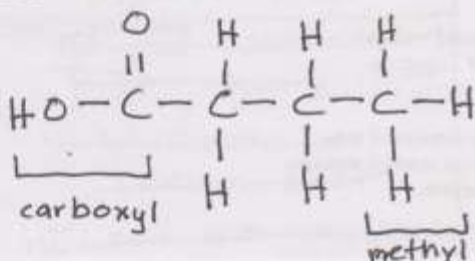 O H H H
HO-C-C-C-C-H
H H H
carboxyl
methyl